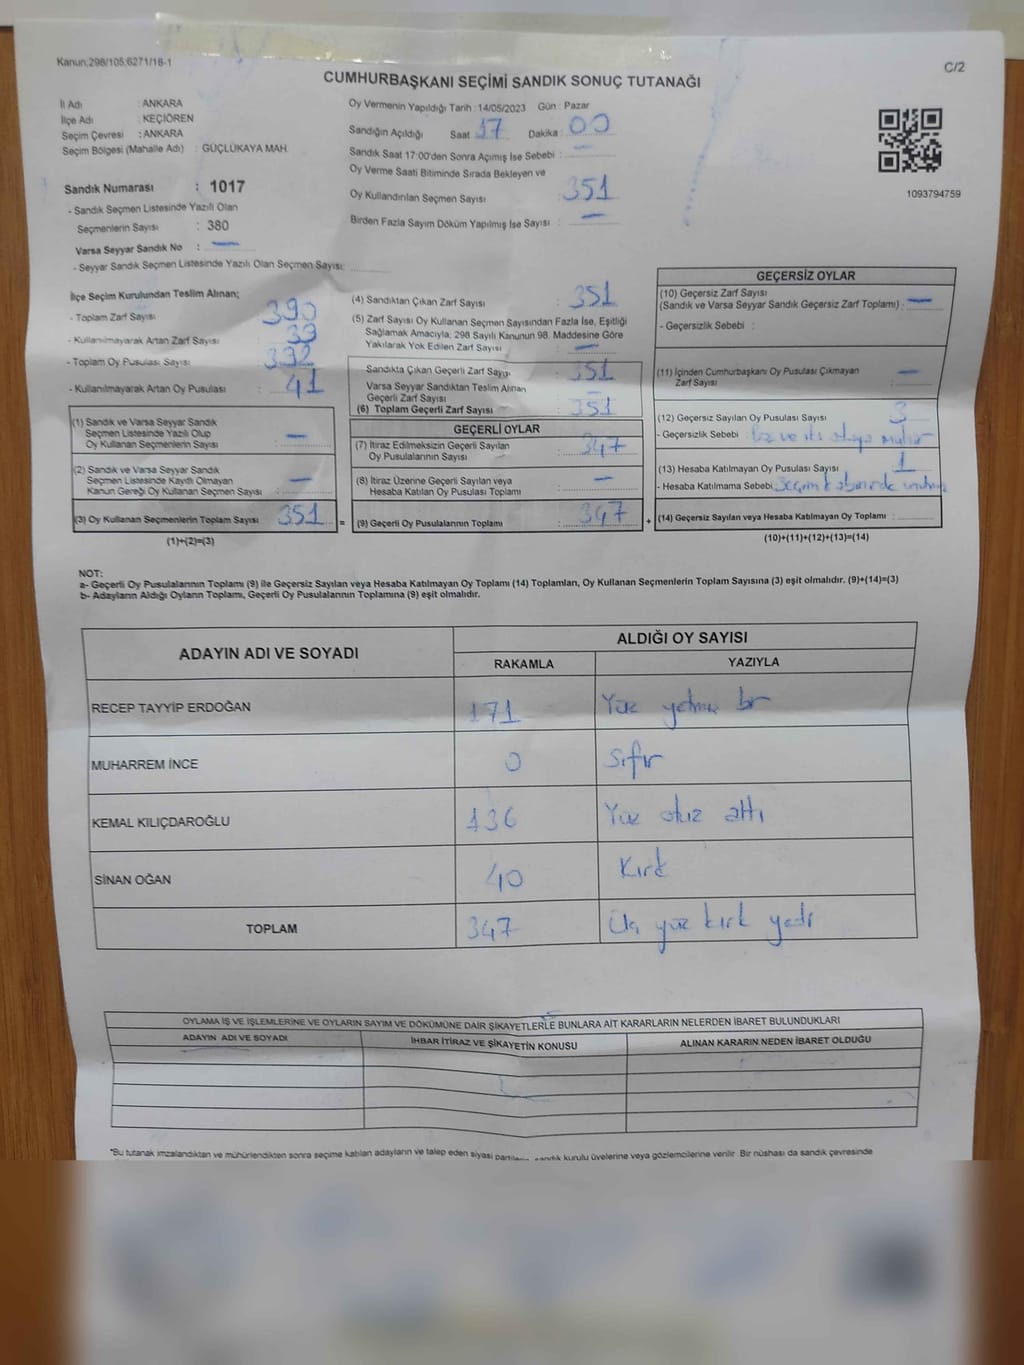 Kanun;298/105;6271/18-1
C/2
CUMHURBAŞKANI SEÇİMİ SANDIK SONUÇ TUTANAĞI
İl Adı : ANKARA
İlçe Adı : KEÇİÖREN
Seçim Çevresi : ANKARA
Seçim Bölgesi (Mahalle Adı) : GÜÇLÜKAYA MAH.
Sandık Numarası : 1017
- Sandık Seçmen Listesinde Yazılı Olan
Seçmenlerin Sayısı : 380
Varsa Seyyar Sandık No : —
- Seyyar Sandık Seçmen Listesinde Yazılı Olan Seçmen Sayısı:
Oy Vermenin Yapıldığı Tarih :14/05/2023 Gün : Pazar
Sandığın Açıldığı Saat 17 Dakika : 00
Sandık Saat 17:00'den Sonra Açımış İse Sebebi : —
Oy Verme Saati Bitiminde Sırada Bekleyen ve
Oy Kullandırılan Seçmen Sayısı : 351
Birden Fazla Sayım Döküm Yapılmış İse Sayısı : —
1093794759
İlçe Seçim Kurulundan Teslim Alınan;
- Toplam Zarf Sayısı 390
- Kullanılmayarak Artan Zarf Sayısı 39
- Toplam Oy Pusulası Sayısı 392
- Kullanılmayarak Artan Oy Pusulası : 41
(1) Sandık ve Varsa Seyyar Sandık
Seçmen Listesinde Yazılı Olup
Oy Kullanan Seçmenlerin Sayısı : —
(2) Sandık ve Varsa Seyyar Sandık
Seçmen Listesinde Kayıtlı Olmayan
Kanun Gereği Oy Kullanan Seçmen Sayısı : —
(3) Oy Kullanan Seçmenlerin Toplam Sayısı 351 =
(1)+(2)=(3)
(4) Sandıktan Çıkan Zarf Sayısı : 351
(5) Zarf Sayısı Oy Kullanan Seçmen Sayısından Fazla İse, Eşitliği
Sağlamak Amacıyla, 298 Sayılı Kanunun 98. Maddesine Göre
Yakılarak Yok Edilen Zarf Sayısı : —
Sandıkta Çıkan Geçerli Zarf Sayısı : 351
Varsa Seyyar Sandıktan Teslim Alınan
Geçerli Zarf Sayısı : —
(6) Toplam Geçerli Zarf Sayısı : 351
GEÇERLİ OYLAR
(7) İtiraz Edilmeksizin Geçerli Sayılan
Oy Pusulalarının Sayısı : 347
(8) İtiraz Üzerine Geçerli Sayılan veya
Hesaba Katılan Oy Pusulası Toplamı : —
(9) Geçerli Oy Pusulalarının Toplamı : 347 +
GEÇERSİZ OYLAR
(10) Geçersiz Zarf Sayısı
(Sandık ve Varsa Seyyar Sandık Geçersiz Zarf Toplamı) : —
- Geçersizlik Sebebi :
(11) İçinden Cumhurbaşkanı Oy Pusulası Çıkmayan
Zarf Sayısı : —
(12) Geçersiz Sayılan Oy Pusulası Sayısı : 3
- Geçersizlik Sebebi :
(13) Hesaba Katılmayan Oy Pusulası Sayısı : 1
- Hesaba Katılmama Sebebi
(14) Geçersiz Sayılan veya Hesaba Katılmayan Oy Toplamı :
(10)+(11)+(12)+(13)=(14)
NOT:
a- Geçerli Oy Pusulalarının Toplamı (9) ile Geçersiz Sayılan veya Hesaba Katılmayan Oy Toplamı (14) Toplamları, Oy Kullanan Seçmenlerin Toplam Sayısına (3) eşit olmalıdır. (9)+(14)=(3)
b- Adayların Aldığı Oyların Toplamı, Geçerli Oy Pusulalarının Toplamına (9) eşit olmalıdır.
ADAYIN ADI VE SOYADI ALDIĞI OY SAYISI
RAKAMLA YAZIYLA
RECEP TAYYİP ERDOĞAN 171 Yüz yetmiş bir
MUHARREM İNCE 0 Sıfır
KEMAL KILIÇDAROĞLU 136 Yüz otuz altı
SİNAN OĞAN 40 Kırk
TOPLAM 347 Üç yüz kırk yedi
OYLAMA İŞ VE İŞLEMLERİNE VE OYLARIN SAYIM VE DÖKÜMÜNE DAİR ŞİKAYETLERLE BUNLARA AİT KARARLARIN NELERDEN İBARET BULUNDUKLARI
ADAYIN ADI VE SOYADI İHBAR İTİRAZ VE ŞİKAYETİN KONUSU ALINAN KARARIN NEDEN İBARET OLDUĞU
*Bu tutanak imzalandıktan ve mühürlendikten sonra seçime katılan adayların ve talep eden siyasi partilerin, sandık kurulu üyelerine veya gözlemcilerine verilir. Bir nüshası da sandık çevresinde